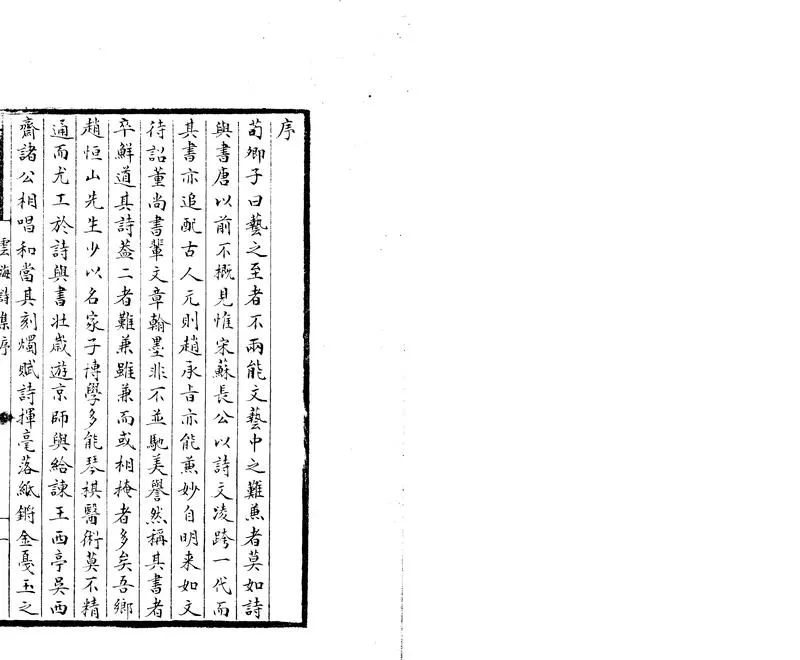 序
荀卿子曰藝之至者不兩能文藝中之難兼者莫如詩
與書唐以前不概見惟宋蘇長公以詩文凌跨一代而
其書亦追配古人元則趙承旨亦能兼妙自明来如文
待詔董尚書輩文章翰墨非不並馳美譽然稱其書者
卒鮮道其詩蓋二者難兼雖兼而或相掩者多矣吾鄉
趙恒山先生少以名家子博學多能琴棋醫術莫不精
通而尤工於詩與書壯歲遊京師與給諫王西亭吳西
齋諸公相唱和當其刻燭賦詩揮毫落紙鏘金戛玉之
雲海詩集序
一